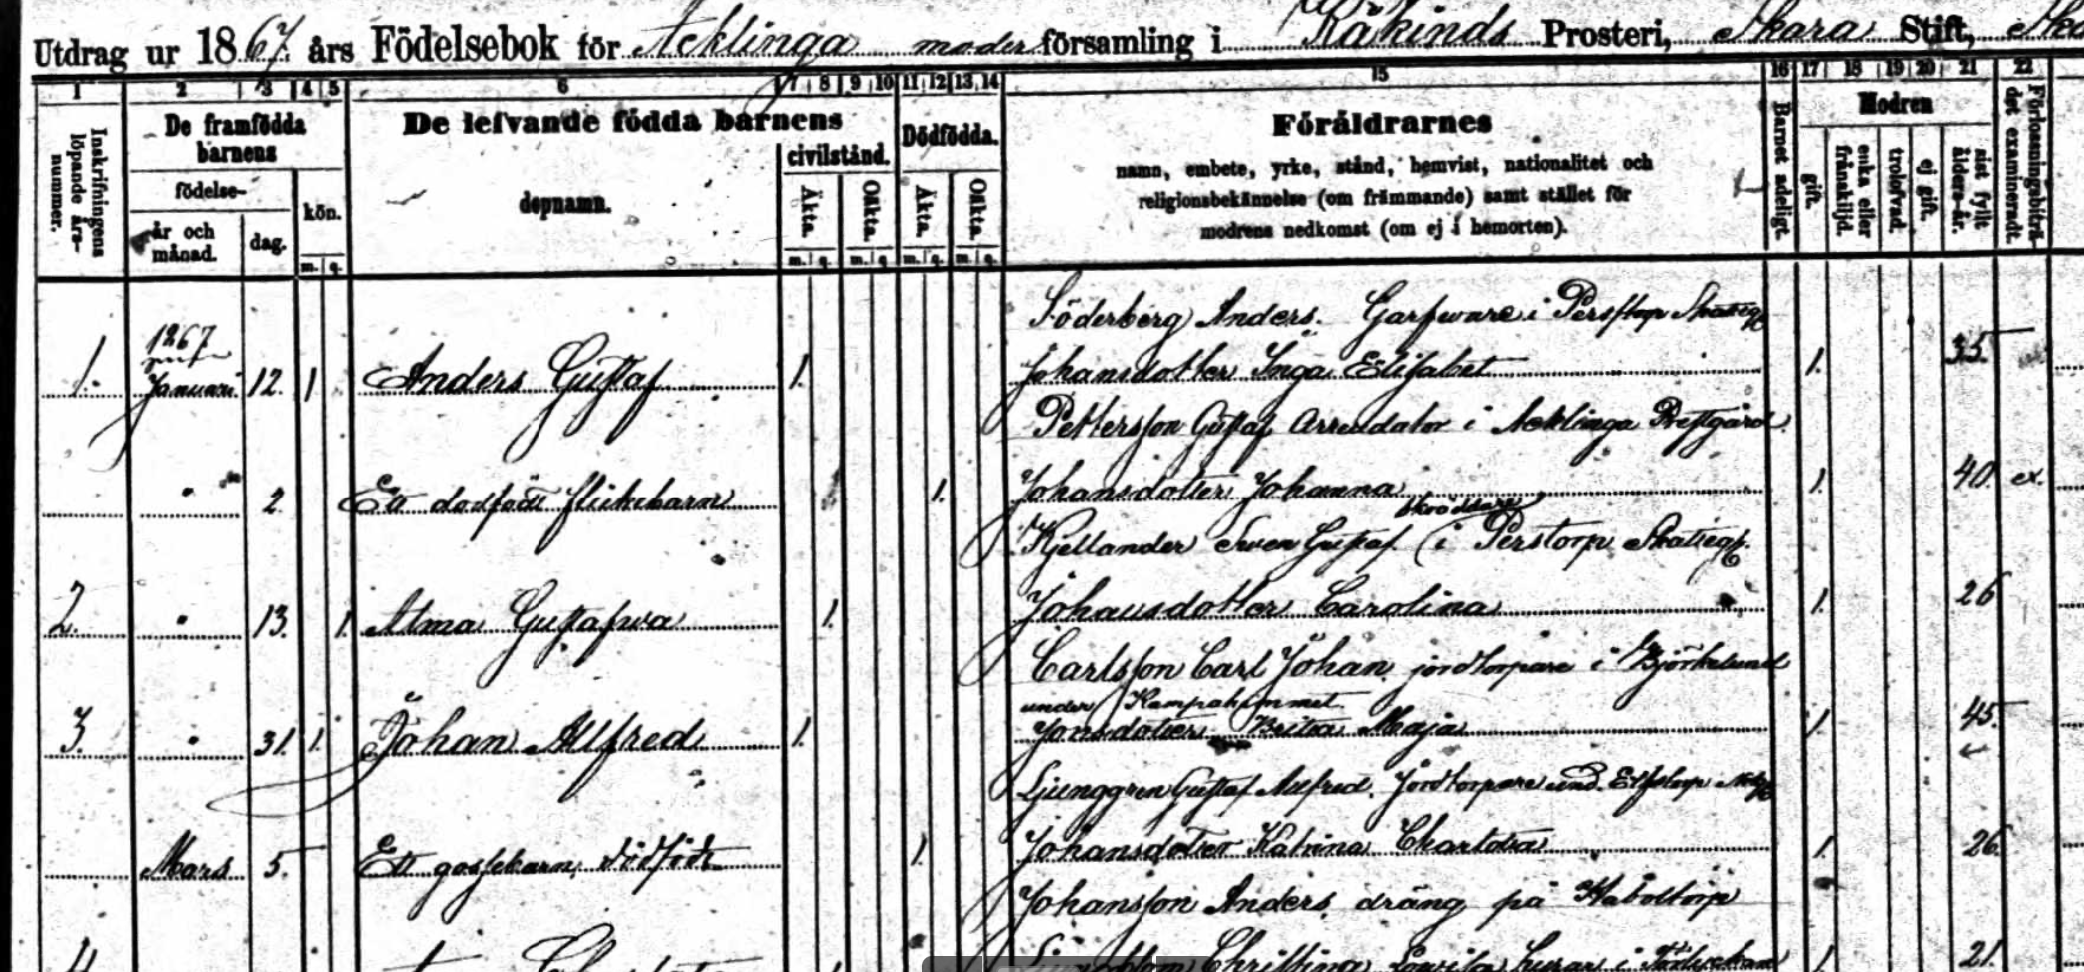 Utdrag ur 1867 års Födelsebok för Acklinga moder församling i Kåkinds Prosteri, Skara Stift, Ska
1 2 3 4 5 6 7 8 9 10 11 12 13 14 15 16 17 18 19 20 21 22
Inskrifningens löpande års-nummer.
De framfödda barnens
födelse-
år och månad.
dag.
kön.
m. q.
De lefvande födda barnens
dopnamn.
civilstånd.
Äkta.
Oäkta.
m. q. m. q.
Dödfödda.
Äkta.
Oäkta.
m. q. m. q.
Föräldrarnes
namn, embete, yrke, stånd, hemvist, nationalitet och
religionsbekännelse (om främmande) samt stället för
modrens nedkomst (om ej i hemorten).
Barnet adeligt.
Modren
gift.
enka eller frånskiljd.
trolofvad.
ej gift.
sist fylt ålders-år.
Förlossningsbiträdet examineradt.
Söderberg Anders. Garfware i Perstorp
1. 1867 Januari 12. 1 Anders Gustaf 1. Johansdotter Inga Elisabet 1. 35.
Pettersson Gustaf Arrendator i Acklinga Prestgård.
" 2. Ett dödfödt flickebarn 1. Johansdotter Johanna 1. 40. ex.
skräddare
Kjellander Sven Gustaf. (i Perstorp
2. " 13. 1. Alma Gustafwa 1. Johansdotter Carolina 1. 26
Carlsson Carl Johan jordtorpare i Björkelund
under Kampahemmet
3. " 31. 1. Johan Allfred 1. Jonsdotter Britta Maja 1. 45.
Ljunggren Gustaf Allfred. Jordtorpare und.
Mars 5. Ett gossebarn dödfödt 1. Johansdotter Katrina Charlotta 1. 26.
Johansson Anders. dräng på Haboltorp
4 Christina Lovisa 1. 21.